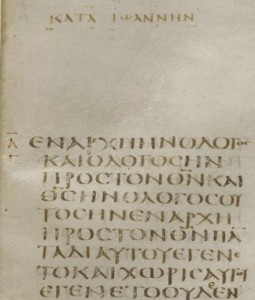 ΚΑΤΑ ΙΩΑΝΝΗΝ
Α ΕΝΑΡΧΗΗΝΟΛΟΓΟϹ
Γ ΚΑΙΟΛΟΓΟϹΗΝ
ΠΡΟϹΤΟΝΘ̅Ν̅ΚΑΙ
Θ̅Ϲ̅ΗΝΟΛΟΓΟϹΟΥ
ΤΟϹΗΝΕΝΑΡΧΗ
ΠΡΟϹΤΟΝΘ̅Ν̅ΠΑ
ΤΑΔΙΑΥΤΟΥΕΓΕΝ
ΤΟΚΑΙΧΩΡΙϹΑΥΤ
ΕΓΕΝΕΤΟΟΥΔΕΝ